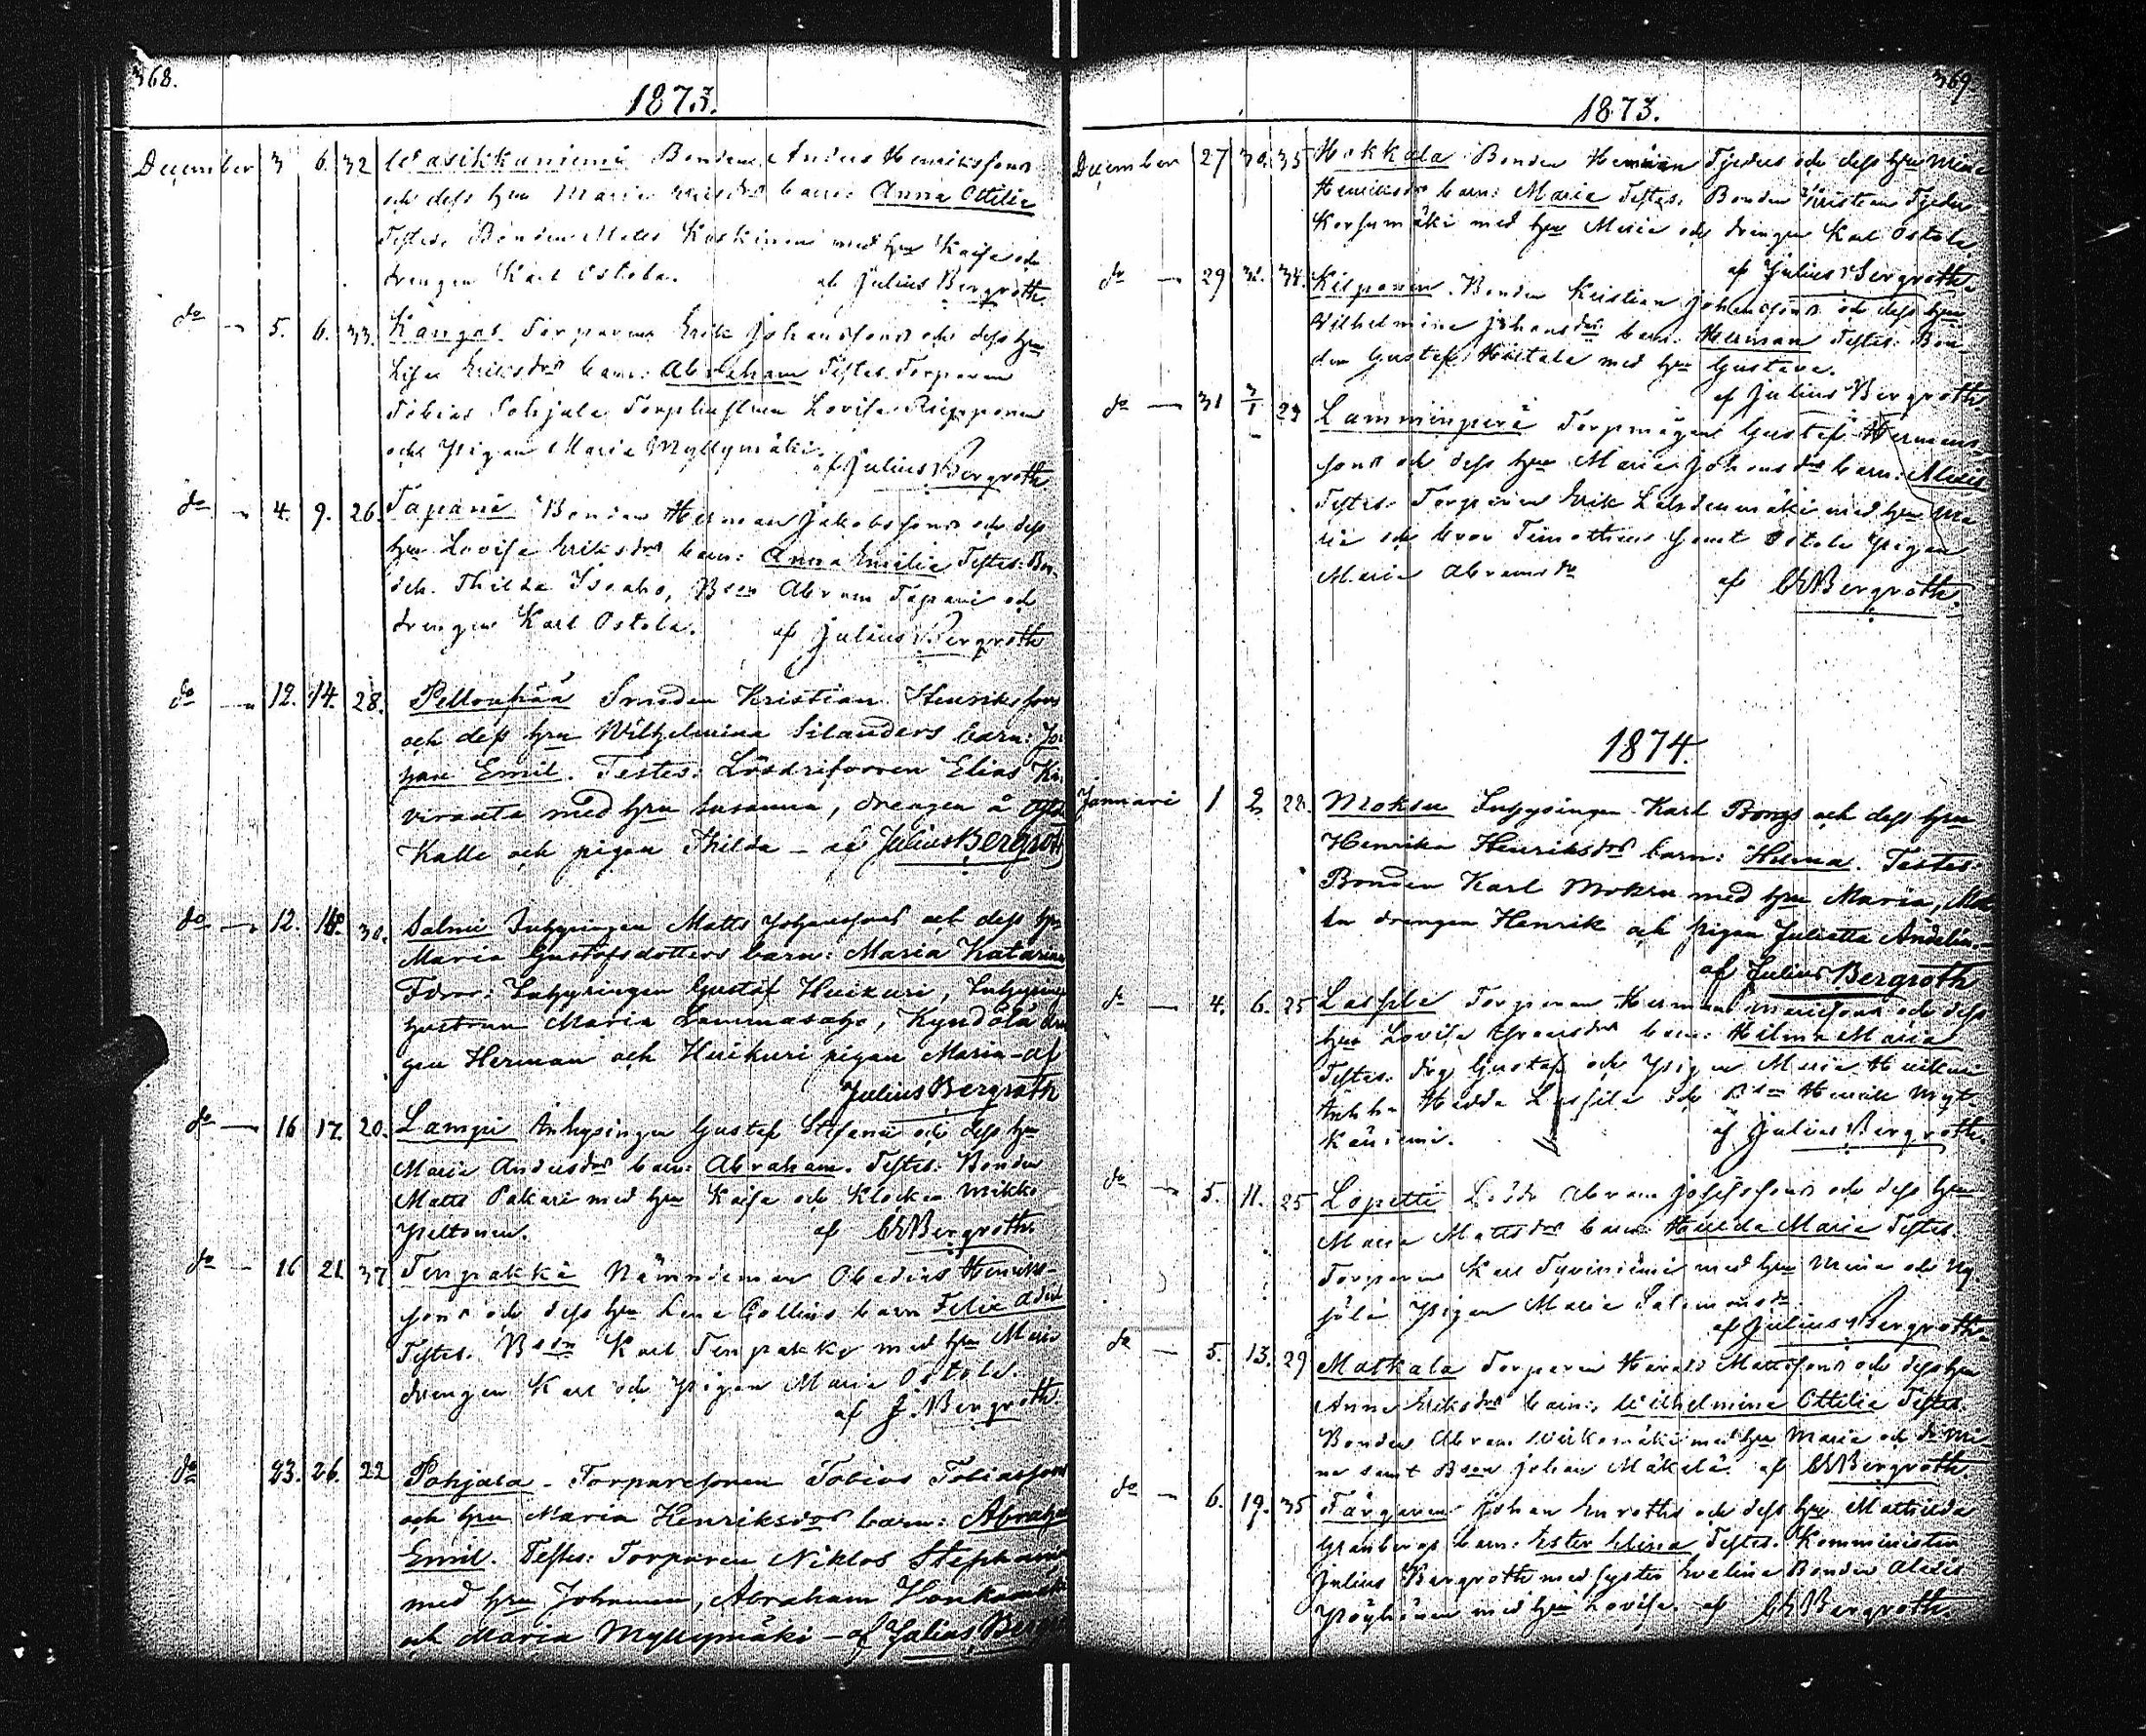 368.
1873.
December 3 6. 32 Wasikkaniemi Bonden Anders Henrikssons
och dess hu Maria barn: Anna Ottilia
Testes. Bonden Matts Koskinen med hu Kaisa och
drengen Karl Ostola. af Julius Bergroth
do 5. 6. 33. Kangas Torparen Erik Johanssons och dess hu
Lisa Eriksdrs barn: Abraham Testes. Torparen
Tobias Pohjala Torphustrun Lovisa
och pigan Maria Myllymäki. af Julius Bergroth
do 4. 9. 26. Tapani Bonden Herman Jakobssons och dess
hu Lovisa Eriksdrs barn: Anna Emilia Testes: Bon-
doh. Thilda Isoaho, Bson Abram Tapani och
drengen Karl Ostola. af Julius Bergroth
do 12. 14. 28. Pellonpää Smeden Kristian Henrikssons
och dess hru Wilhelmina Silanders barn: Jo-
han Emil. Testes: Lösdrifvaren Elias Ko-
viranta med hru Susanna, drengen å
Kalle och pigan Thilda - af Julius Bergroth
do 12. 18. 30. Salmi Inhysingen Matts Johanssons och dess hu
Maria Gustafsdotters barn: Maria Katarina
Tdrar: Inhysingen Gustaf Huikuri, Inhysing
hustrun Maria Lammasaho, Kyndölä dren
gen Herman och Huikuri pigan Maria - af
Julius Bergroth
do 16 17. 20. Lampi Inhysingen Gustaf Stefani och dess hu
Maria Andersdrs barn: Abraham. Testes: Bonden
Matts Pakari med hu Kaisa och Klockar Mikko
Peltonen. af Bergroth.
do 16 21 37 Tenpakka Nämndeman Obadias Henriks-
sons och dess hu Lena Gallens barn Felix
Testes. Bson Karl Tenpakka med hu Maria
drengen Karl och pigan Maria Ostola.
af J. Bergroth
do 23. 26. 22 Pohjala - Torparesonen Tobias Tobiassons
och hru Maria Henriksdrs barn: Abraham
Emil. Testes: Torparen Niklos Stephani
med hru Johanna, Abraham Honkamäki
och Maria Myllymäki - af Julius Bergroth
369
1873.
December 27 30. 35 Hokkala Bonden Herman Tjeders och dess hru Maria
Henriksdrs barn: Maria Testes. Bonden Kristian Tjeder
Korsumäki med hru Maria och drengen Karl Ostola
af Julius Bergroth
do 29 31. 34. Kilponen. Bonden Kristian Johanssons och dess hru
Wilhelmina Johansdrs barn: Herman Testes: Bon-
den Gustaf Hietala med hu Gustava.
af Julius Bergroth
do 31 3/1 23 Lamminperä Torpmågen Gustaf Hermans-
sons och dess hru Maria Johansdrs barn:
Testes. Torparen Erik med hru Ma
ria och bror Timotheus samt Ostola pigan
Maria Abramsdr af Bergroth.
1874.
Januari 1 2 22. Moksu Inhysingen Karl Bongs och dess hru
Henrika Henriksdrs barn: Helena. Testes:
Bonden Karl Moksu med hru Maria,
drengen Henrik och pigan Julietta Andelin.
af Julius Bergroth
do 4. 6. 25 Lassila Torparen Herman och dess
hru Lovisa barn: Hilma Maria
Testes. drg Gustaf och pigan Maria Huikuri
Hedda Lassila och Bson Henrik
kaniemi. af Julius Bergroth.
do 5. 11. 25 Lopetti Abram Josefssons och dess hru
Maria Mattsdrs barn: Hulda Maria Testes.
Torparen Karl med hru Maria och
jölä pigan Maria Salomonsdr
af Julius Bergroth
do 5. 13. 29 Matkala Torparen Mattssons och dess hu
Anna Eriksdrs barn: Wilhelmina Ottilia Testes.
Bonden Abram med hu Maria och dr Mi
na samt Bson Johan Mäkelä. af Bergroth
do 6. 19. 35 Färgaren Johan Enroths och dess hu Mathilda
Granbergs barn: Ester Elina Testes. Kommunistern
Julius Bergroth med syster Evelina Bonden Alexis
Pöyhönen med hu Lovisa. af Bergroth.